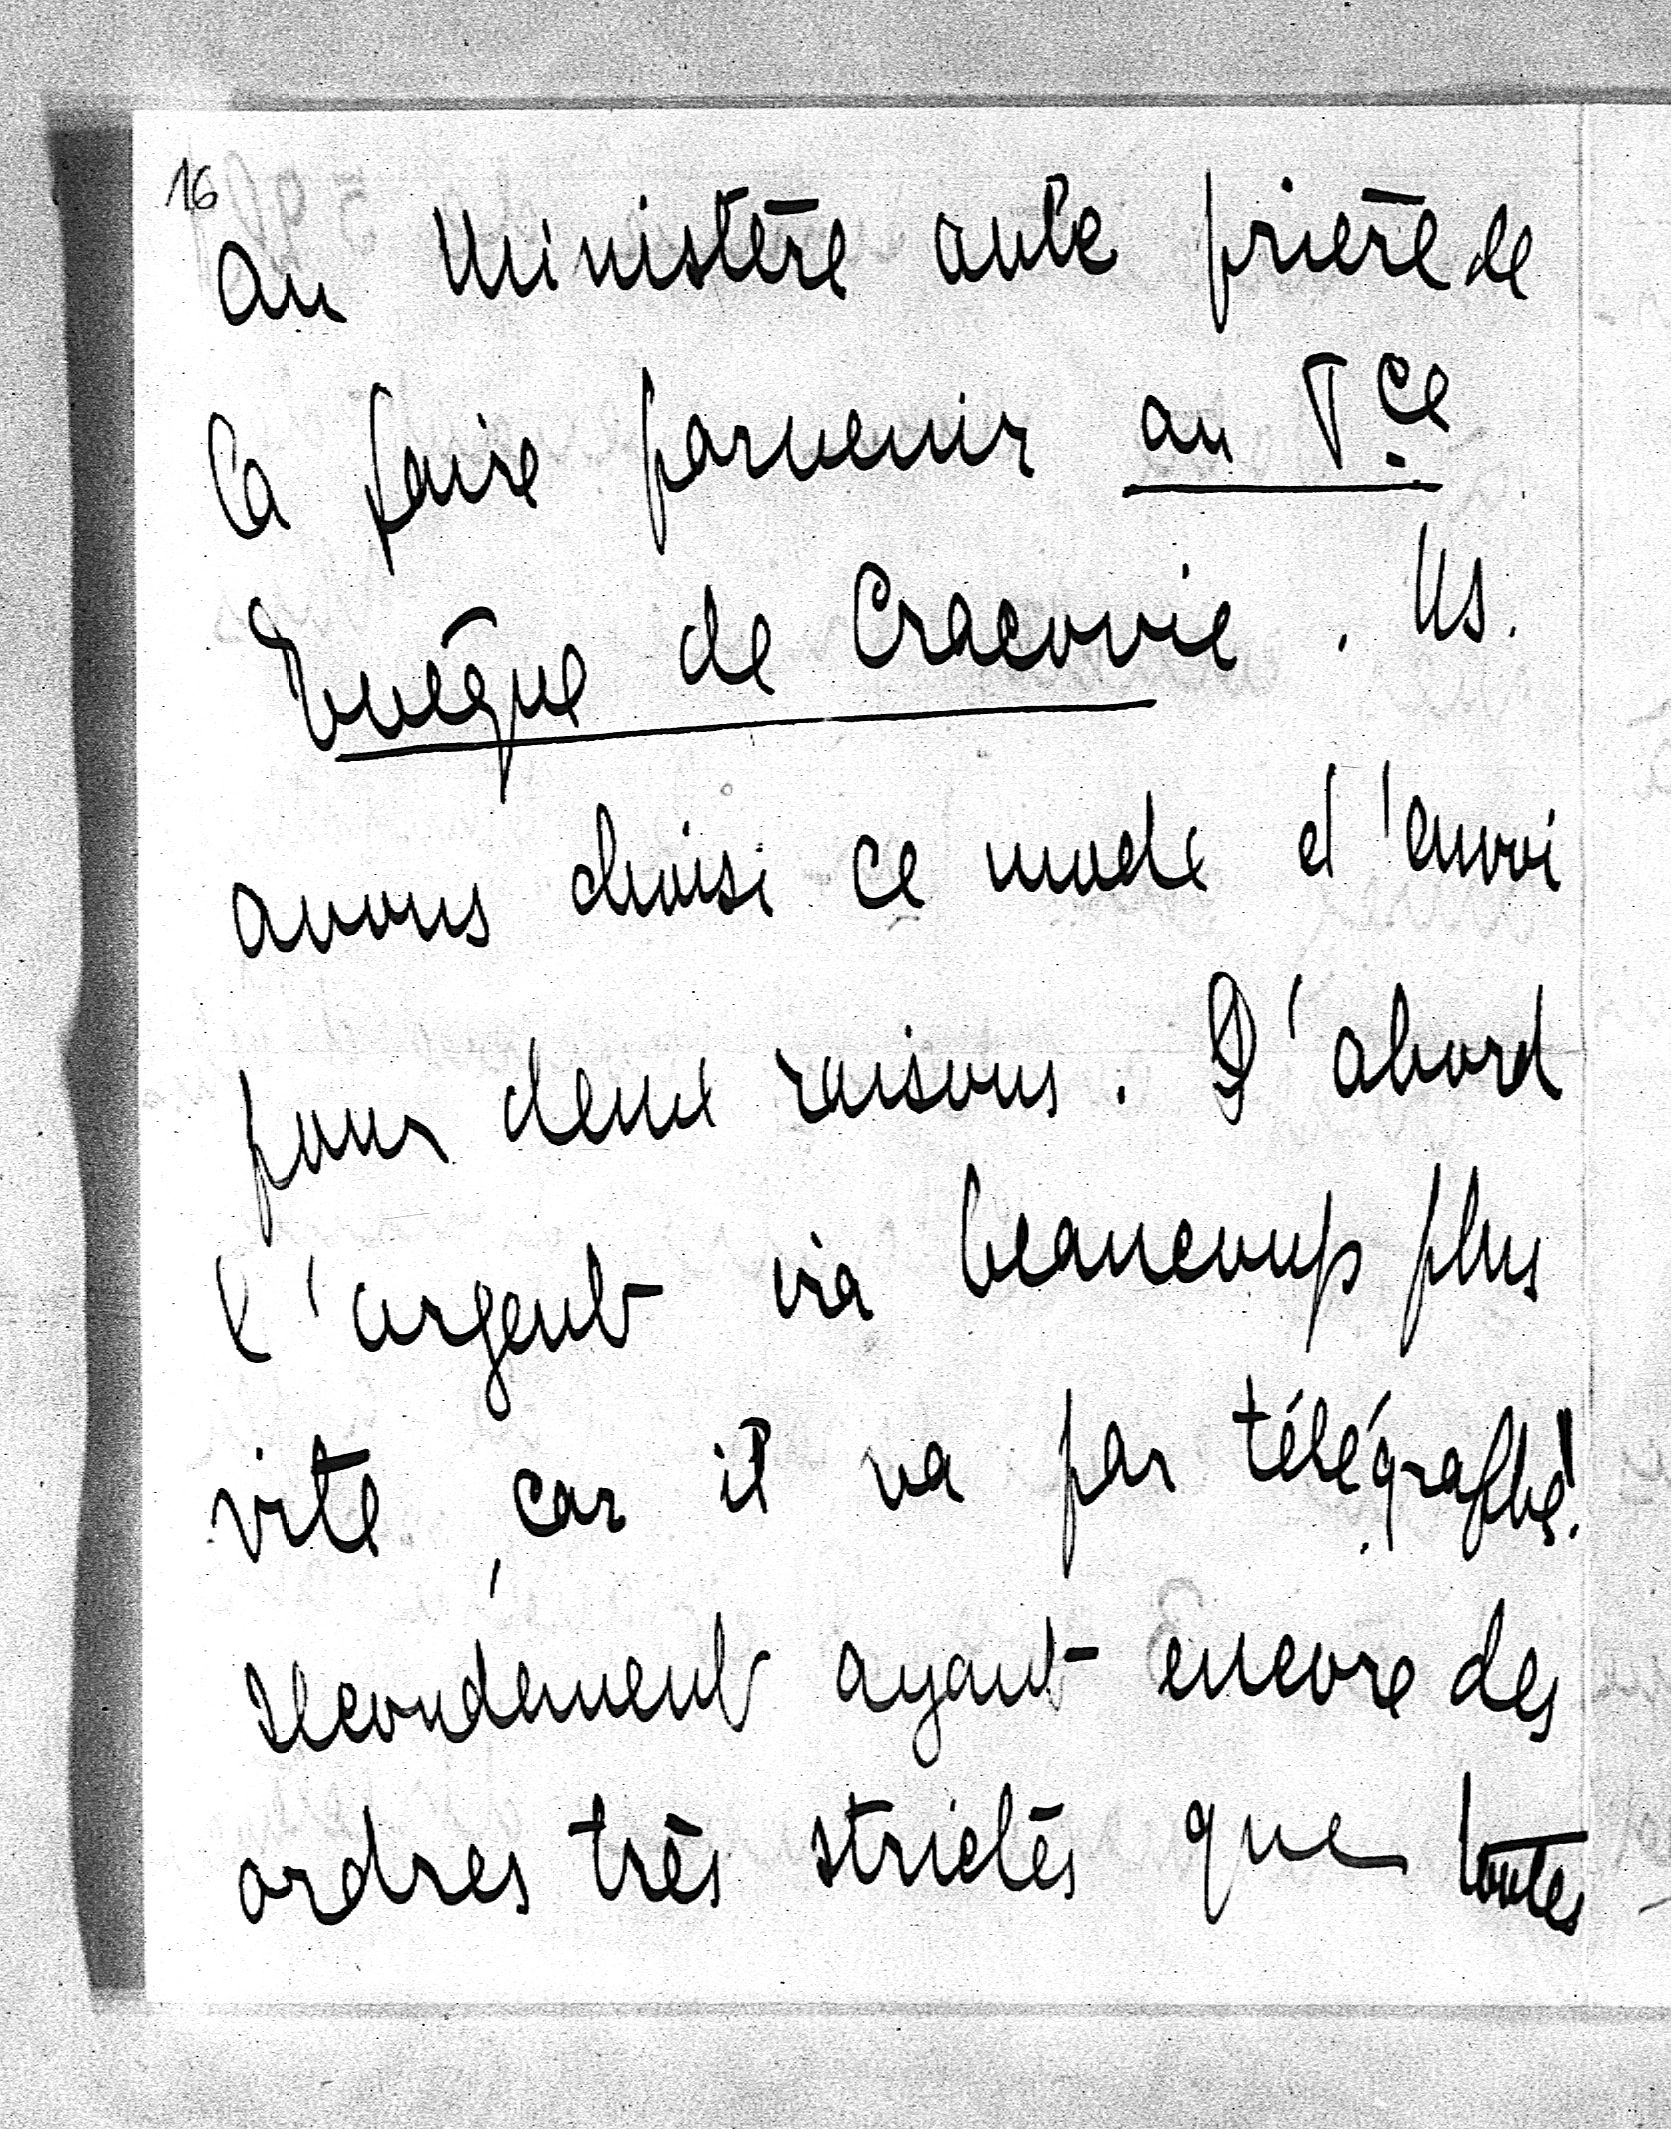 16
au Ministère avec prière de
la faire parvenir au Pce
Evêque de Cracovie. Ns.
avons choisi ce mode d'envoi
pour deux raisons. D'abord
l'argent ira beaucoup plus
vite, car il va par télégraphe!
secondement ayant encore des
ordres très strictes que toutes